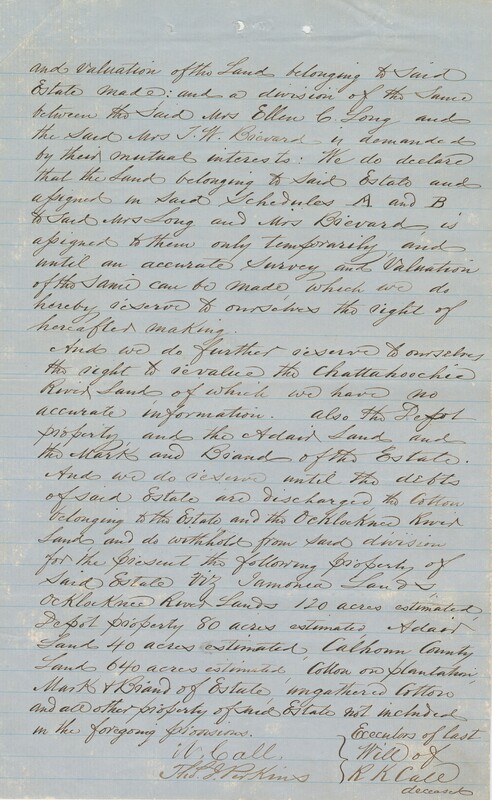 and Valuation of the Land belonging to Said
Estate made: and a division of the Same
between the Said Mrs Ellen C. Long and
the Said Mrs T. W. Brevard is demanded
by their mutual interests: We do declare
that the Land belonging to Said Estate and
assigned in Said Schedules A and B
to Said Mrs Long and Mrs Brevard, is
assigned to them only temporarily, and
until an accurate Survey and Valuation
of the Same can be made, which we do
hereby reserve to ourselves the right of
hereafter making.
And we do further reserve to ourselves
the right to revalue the Chattahoochie
River Land of which we have no
accurate information. also the Depot
property, and the Adair Land and
the Mark and Brand of the Estate.
And we do reserve until the debts
of Said Estate are discharged the Cotton
belonging to the Estate and the Ocklocknee River
Land and do withhold from Said division
for the present the following property of
Said Estate Viz Iamonia Lands
Ocklocknee River Lands 120 acres estimated
Depot property 80 acres estimated Adair
Land 40 acres estimated, Calhoun County
Land 640 acres estimated, Cotton on plantation,
Mark & Brand of Estate, ungathered Cotton
and all other property of said Estate not included
in the foregoing provisions.
Call
Thos J. Perkins
Executors of last
Will of
R K Call
deceased